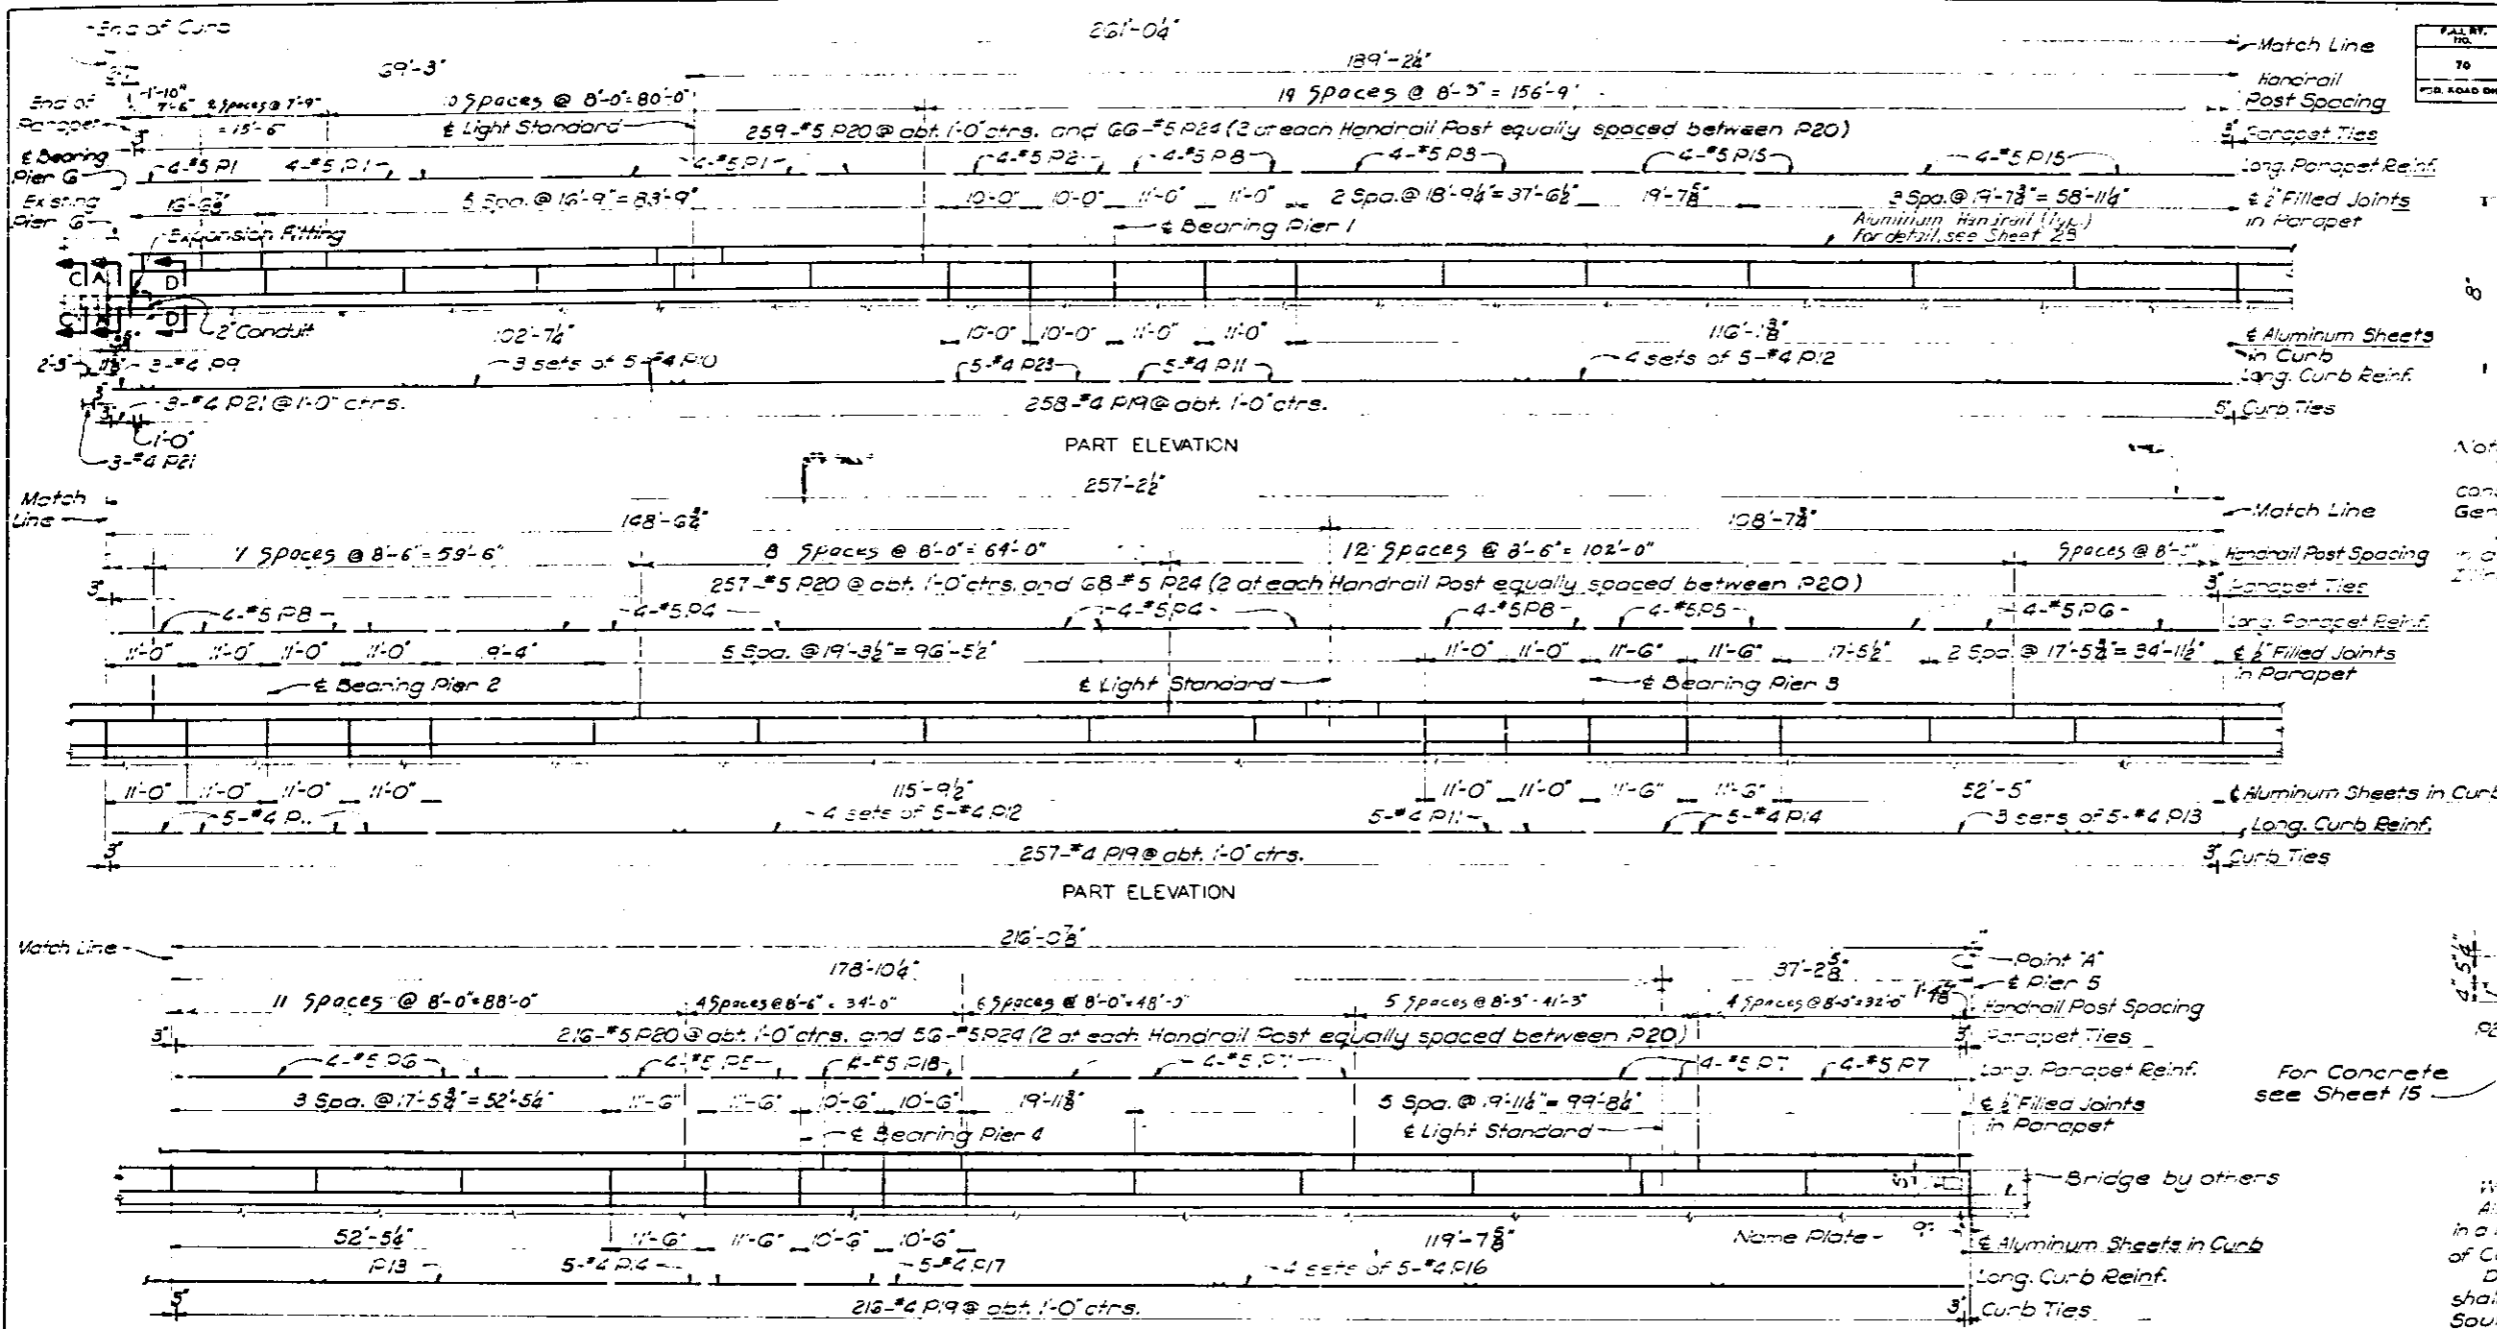 End of Curb
261'-0¼"
Match Line
F.A.I. RT. NO.
70
69'-3"
189'-2¼"
Handrail Post Spacing
End of Parapet
1'-10"
7'-6"
2 Spaces @ 7'-9" = 15'-6"
10 Spaces @ 8'-0" = 80'-0"
19 Spaces @ 8'-3" = 156'-9"
℄ Light Standard
259-#5 P20 @ abt. 1'-0" ctrs. and 66-#5 P24 (2 at each Handrail Post equally spaced between P20)
3"
Parapet Ties
℄ Bearing Pier 6
4-#5 P1
4-#5 P1
4-#5 P1
4-#5 P2
4-#5 P8
4-#5 P3
4-#5 P15
4-#5 P15
Long. Parapet Reinf.
Existing Pier 6
16'-6⅞"
5 Spa. @ 16'-9" = 83'-9"
10'-0"
10'-0"
11'-0"
11'-0"
2 Spa. @ 18'-9¼" = 37'-6½"
19'-7⅝"
3 Spa. @ 19'-7¾" = 58'-11¼"
℄ ½" Filled Joints in Parapet
Expansion Fitting
℄ Bearing Pier 1
Aluminum Handrail (Typ.)
For detail, see Sheet 23
C
A
D
C
A
D
2" Conduit
102'-7¼"
10'-0"
10'-0"
11'-0"
11'-0"
116'-1⅜"
℄ Aluminum Sheets in Curb
3-#4 P9
3 sets of 5-#4 P10
5-#4 P23
5-#4 P11
4 sets of 5-#4 P12
Long. Curb Reinf.
3-#4 P21 @ 1'-0" ctrs.
258-#4 P19 @ abt. 1'-0" ctrs.
Curb Ties
1'-0"
3-#4 P21
PART ELEVATION
Match Line
257'-2½"
Match Line
148'-6¾"
108'-7¾"
7 Spaces @ 8'-6" = 59'-6"
8 Spaces @ 8'-0" = 64'-0"
12 Spaces @ 8'-6" = 102'-0"
Handrail Post Spacing
3"
257-#5 P20 @ abt. 1'-0" ctrs. and 68-#5 P24 (2 at each Handrail Post equally spaced between P20)
3"
Parapet Ties
4-#5 P8
4-#5 P4
4-#5 P4
4-#5 P8
4-#5 P5
4-#5 P6
Long. Parapet Reinf.
11'-0"
11'-0"
11'-0"
11'-0"
5 Spa. @ 19'-3½" = 96'-5½"
11'-0"
11'-0"
11'-6"
11'-6"
17'-5½"
2 Spa. @ 17'-5¾" = 34'-11½"
℄ ½" Filled Joints in Parapet
℄ Bearing Pier 2
℄ Light Standard
℄ Bearing Pier 3
11'-0"
11'-0"
11'-0"
11'-0"
115'-9½"
11'-0"
11'-0"
11'-6"
11'-6"
52'-5"
℄ Aluminum Sheets in Curb
4 sets of 5-#4 P12
5-#4 P11
5-#4 P14
3 sets of 5-#4 P13
Long. Curb Reinf.
3"
257-#4 P19 @ abt. 1'-0" ctrs.
3"
Curb Ties
PART ELEVATION
Match Line
216'-0⅞"
178'-10¼"
37'-2⅝"
Point "A"
℄ Pier 5
11 Spaces @ 8'-0" = 88'-0"
4 Spaces @ 8'-6" = 34'-0"
6 Spaces @ 8'-0" = 48'-0"
5 Spaces @ 8'-3" = 41'-3"
4 Spaces @ 8'-0" = 32'-0"
Handrail Post Spacing
3"
216-#5 P20 @ abt. 1'-0" ctrs. and 56-#5 P24 (2 at each Handrail Post equally spaced between P20)
3"
Parapet Ties
4-#5 P6
4-#5 P5
4-#5 P18
4-#5 P7
4-#5 P7
4-#5 P7
Long. Parapet Reinf.
For Concrete see Sheet 15
3 Spa. @ 17'-5¾" = 52'-5¼"
11'-6"
11'-6"
10'-6"
10'-6"
19'-11⅜"
5 Spa. @ 19'-11¼" = 99'-8¼"
℄ ½" Filled Joints in Parapet
℄ Bearing Pier 4
℄ Light Standard
Bridge by others
52'-5¼"
11'-6"
11'-6"
10'-6"
10'-6"
119'-7⅝"
Name Plate
9"
℄ Aluminum Sheets in Curb
P13
5-#4 P14
5-#4 P17
4 sets of 5-#4 P16
Long. Curb Reinf.
216-#4 P19 @ abt. 1'-0" ctrs.
3"
Curb Ties